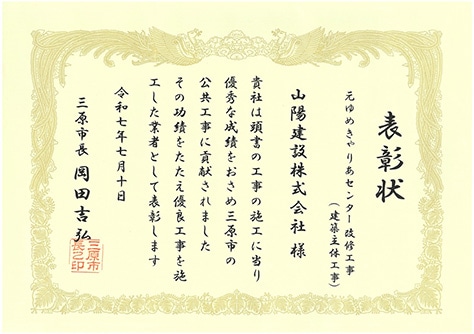 表彰状
元ゆめきゃりあセンター改修工事
（建築主体工事）
山陽建設株式会社 様
貴社は頭書の工事の施工に当り
優秀な成績をおさめ三原市の
公共工事に貢献されました
その功績をたたえ優良工事を施
工した業者として表彰します
令和七年七月十日
三原市長 岡田吉弘
三原市
長之印